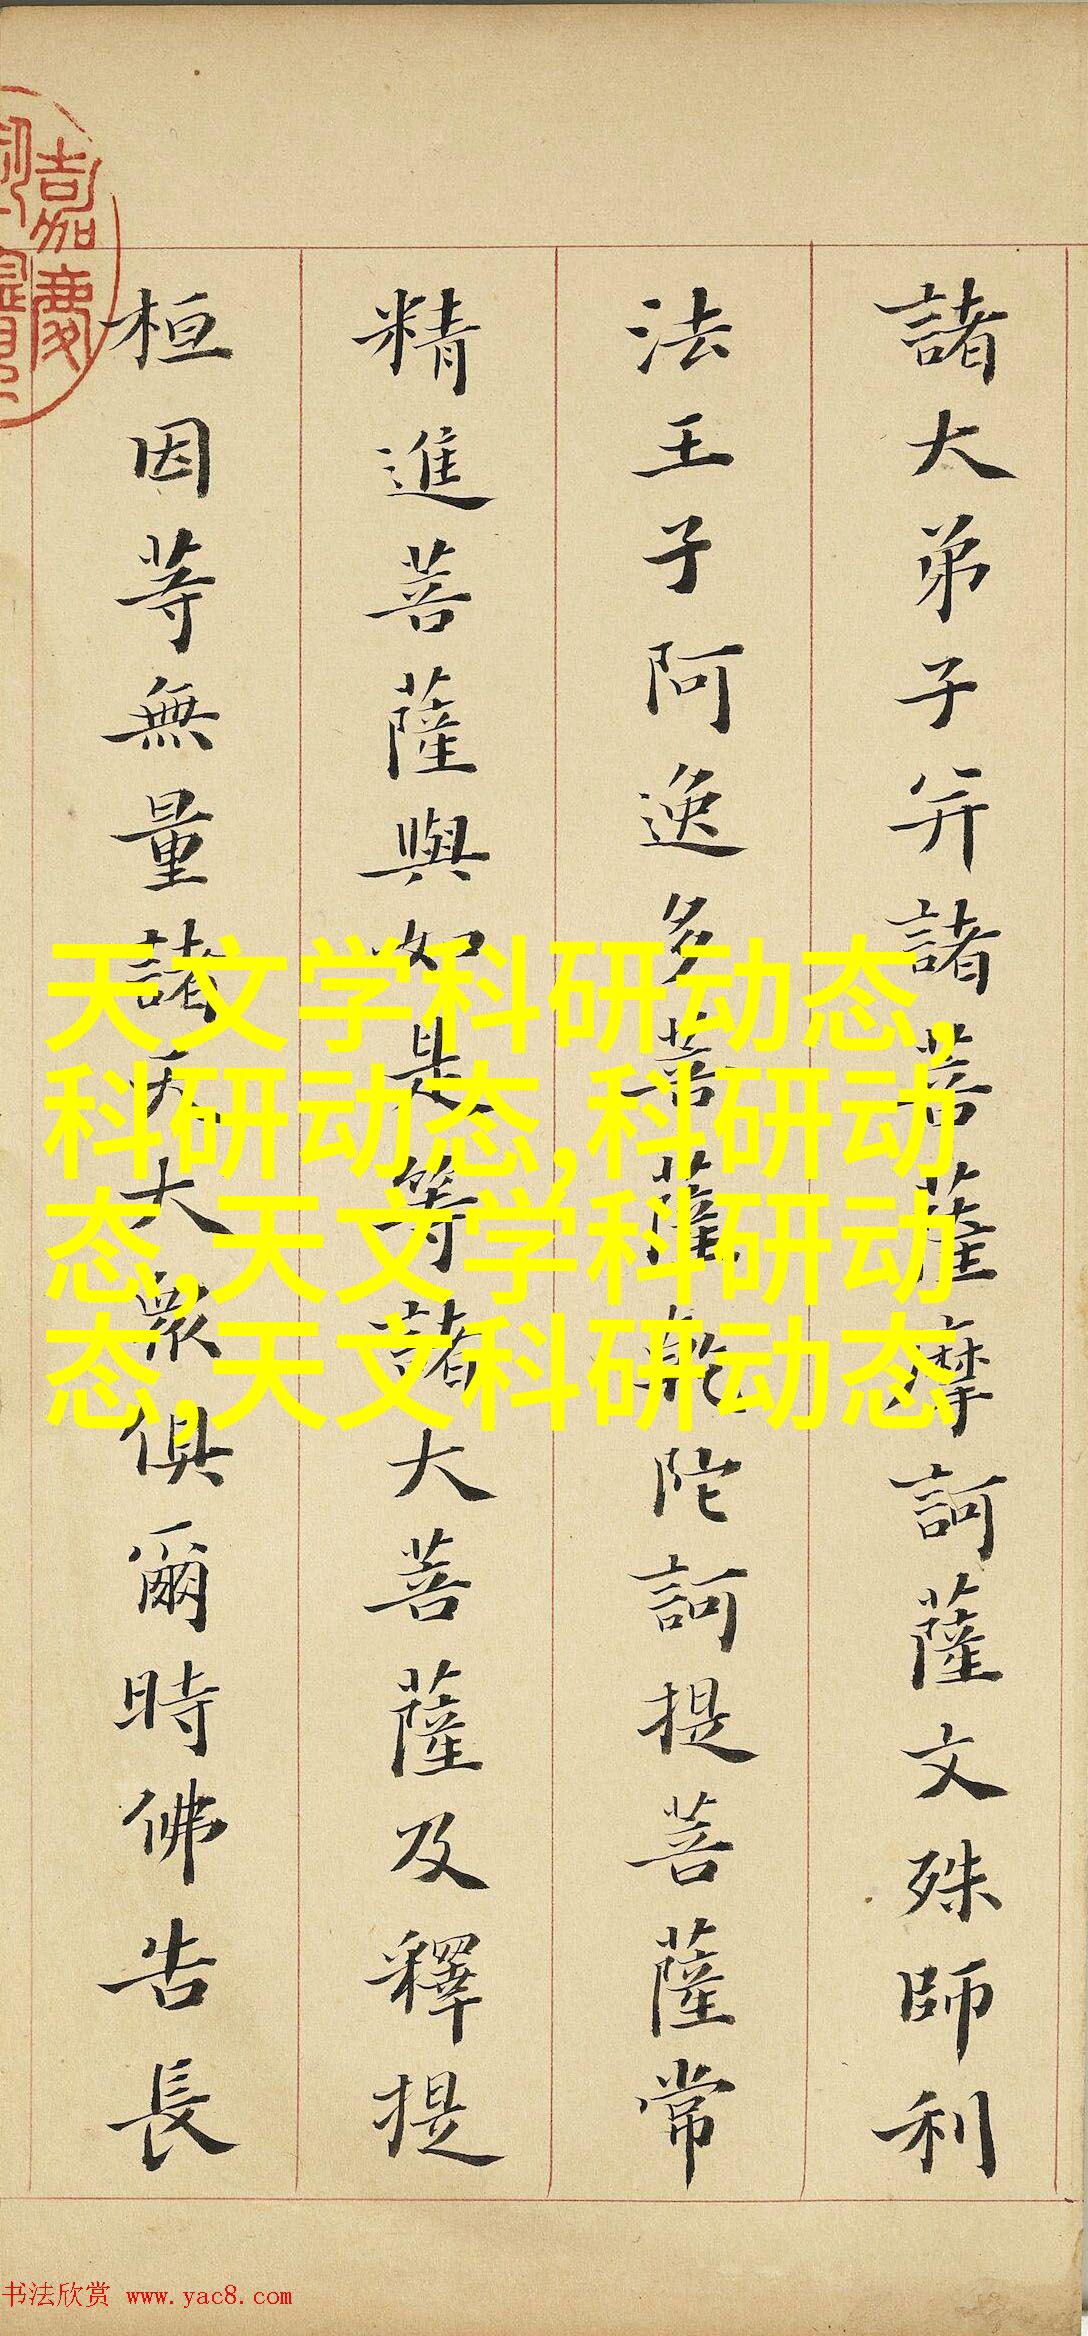 諸大弟子并諸菩薩摩訶薩文殊師利
法王子阿逸多菩薩乾陀訶提菩薩常
精進菩薩與如是等諸大菩薩及釋提
桓因等無量諸天大衆俱爾時佛告長
嘉慶
天文学科研动态,
科研动态,科研动
态,天文学科研动
态,天文科研动态
书法欣赏 www.yac8.com